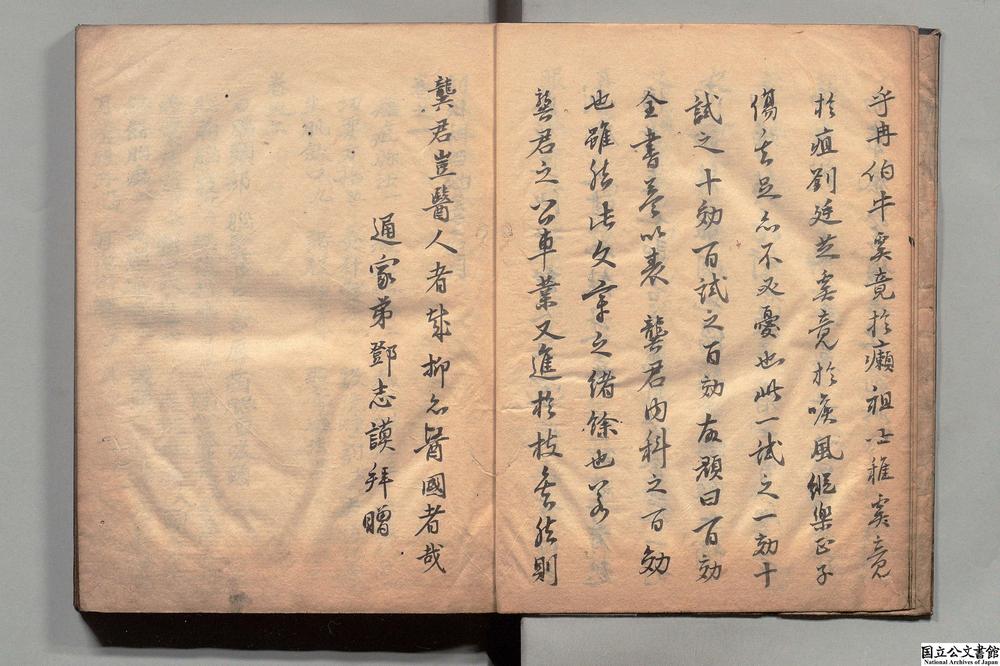 乎冉伯牛奚竟於癩祖士稚奚竟
於疽劉廷芝奚竟於喉風縱樂正子
傷其足亦不必憂也此一試之一効十
試之十効百試之百効故顏曰百効
全書葢以表龔君內科之百効
也雖然此文章之緒餘也若
龔君之公車業又進於技矣然則
龔君豈醫人者哉抑亦醫國者哉
通家弟鄧志謨拜贈
国立公文書館
National Archives of Japan